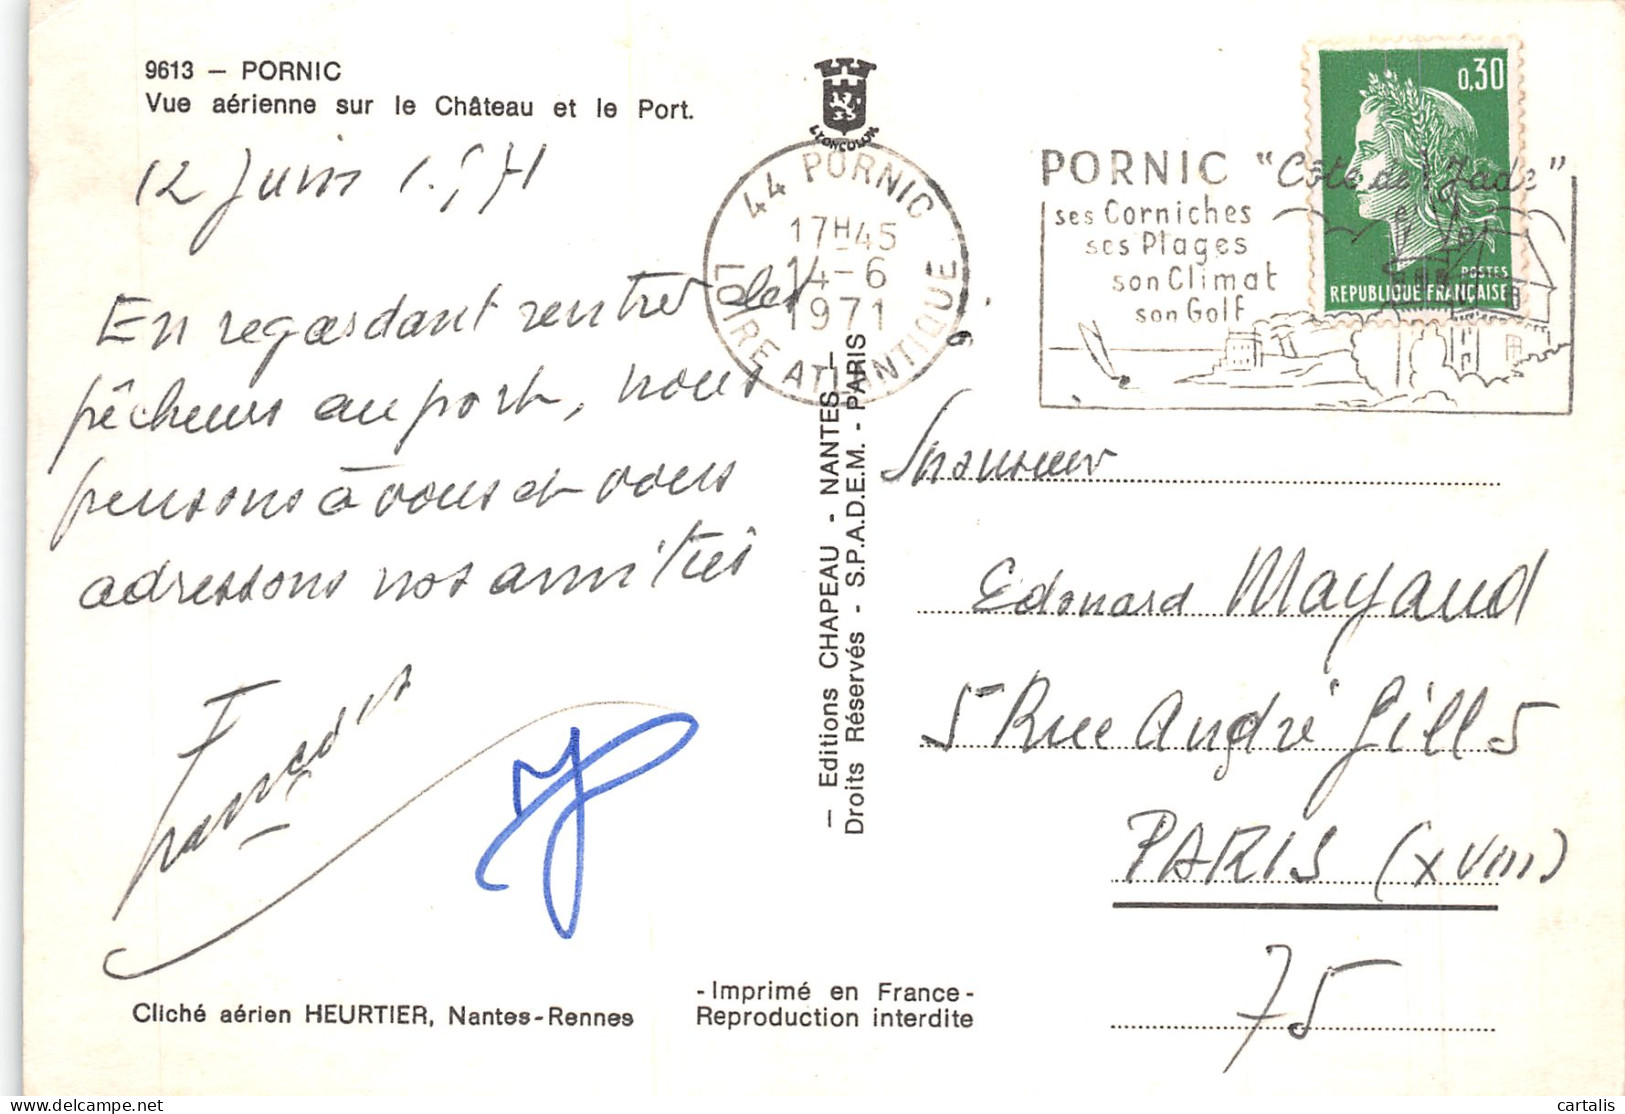 9613 – PORNIC
Vue aérienne sur le Château et le Port.
12 Juin
En regardant rentrer des
pêcheurs au port, nous
pensons à vous et vous
adressons nos amitiés
Cliché aérien HEURTIER, Nantes-Rennes
44 PORNIC
17H45
14-6
1971
LOIRE ATLANTIQUE
— Editions CHAPEAU - NANTES —
Droits Réservés - S.P.A.D.E.M. - PARIS
-Imprimé en France-
Reproduction interdite
PORNIC "Côte de Jade"
ses Corniches
ses Plages
son Climat
son Golf
0,30
POSTES
REPUBLIQUE FRANÇAISE
Monsieur
Edouard Mayaud
5 Rue André Gill 5
PARIS (XVIII)
75
cartalis